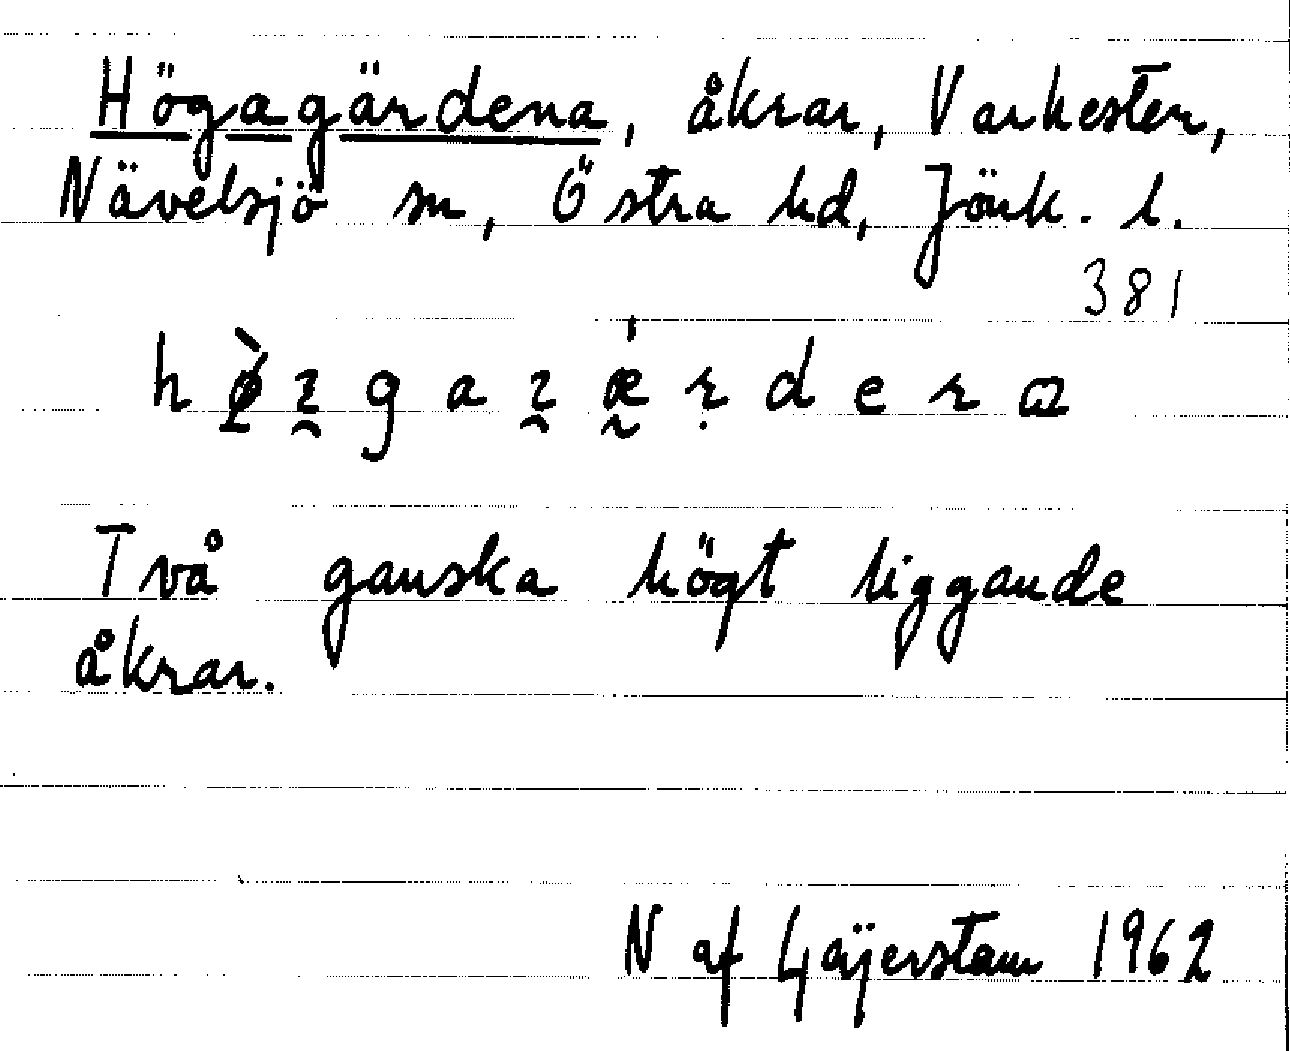 Högagärdena, åkrar, Varkester,
Nävelsjö sn, Östra hd, Jönk. l.
381
Två ganska högt liggande
åkrar.
N af Gäijerstam 1962